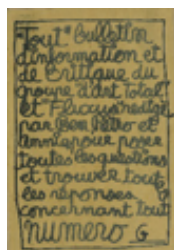 "Tout" Bulletin
d'information et
de critique du
groupe d'art Total
et Fluxus redigé
par Ben Pétro et
annie pour poser
toutes les questions
et trouver toute
les réponses
concernant tout
numero 6